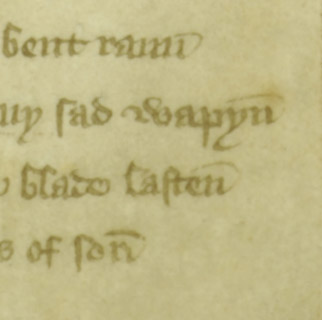 bent rauin
sad wapyn
blade lasten
of son